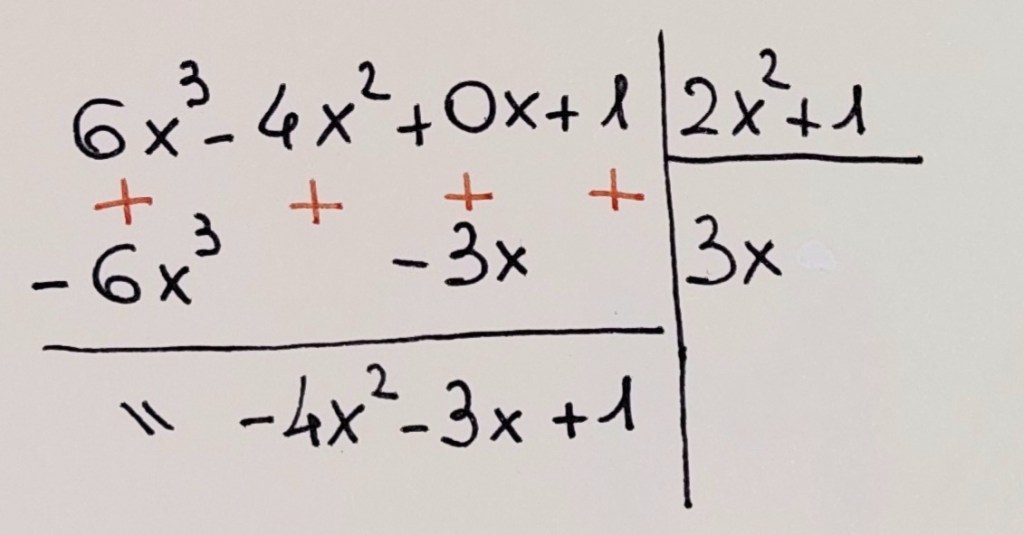 6x³ - 4x² + 0x + 1 | 2x² + 1
+ + + +
- 6x³ - 3x | 3x
\\ - 4x² - 3x + 1